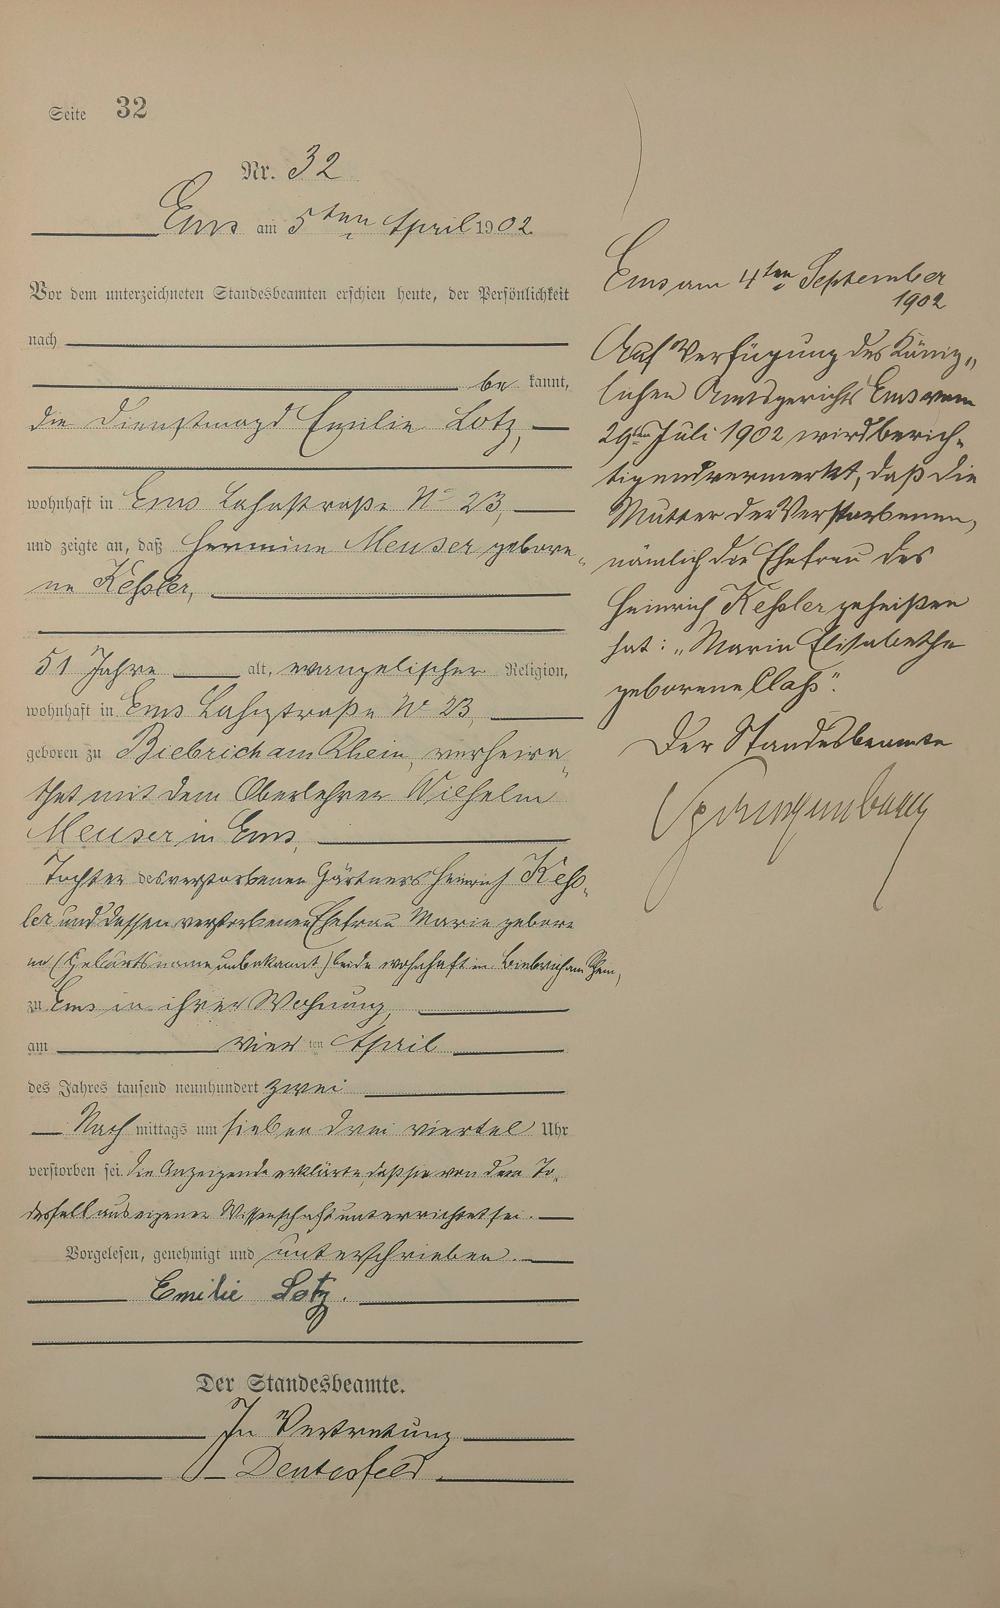 Seite 32
Nr. 32
Ems am 5ten April 1902
Vor dem unterzeichneten Standesbeamten erschien heute, der Persönlichkeit
nach
be kannt,
die Dienstmagd Emilie Lotz,
wohnhaft in Ems Lahnstraße No 23,
und zeigte an, daß Hermine Meuser gebore-
ne Keßler,
51 Jahre alt, evangelischer Religion,
wohnhaft in Ems Lahnstraße No 23,
geboren zu Biebrich am Rhein, verheira-
thet mit dem Oberlehrer Wilhelm
Meuser in Ems,
Tochter des verstorbenen Gärtners Heinrich Keß-
ler und dessen verstorbenen Ehefrau Marie gebore
ne (Geburtsname unbekannt) beide wohnhaft in Biebrich am Rhein,
zu Ems in ihrer Wohnung,
am vier ten April
des Jahres tausend neunhundert zwei
Nach mittags um sieben drei viertel Uhr
verstorben sei. Die Anzeigende erklärte, daß sie von dem To-
desfall aus eigener Wissenschaft unterrichtet sei.
Vorgelesen, genehmigt und unterschrieben.
Emilie Lotz.
Der Standesbeamte.
In Vertretung
Ems am 4ten September
1902
Auf Verfügung des König-
lichen Amtsgerichts Ems vom
29ten Juli 1902 wird berich-
tigend vermerkt, daß die
Mutter der Verstorbenen,
nämlich die Ehefrau des
Heinrich Keßler geheißen
hat: "Maria Elisabethe
geborene Claß".
Der Standesbeamte